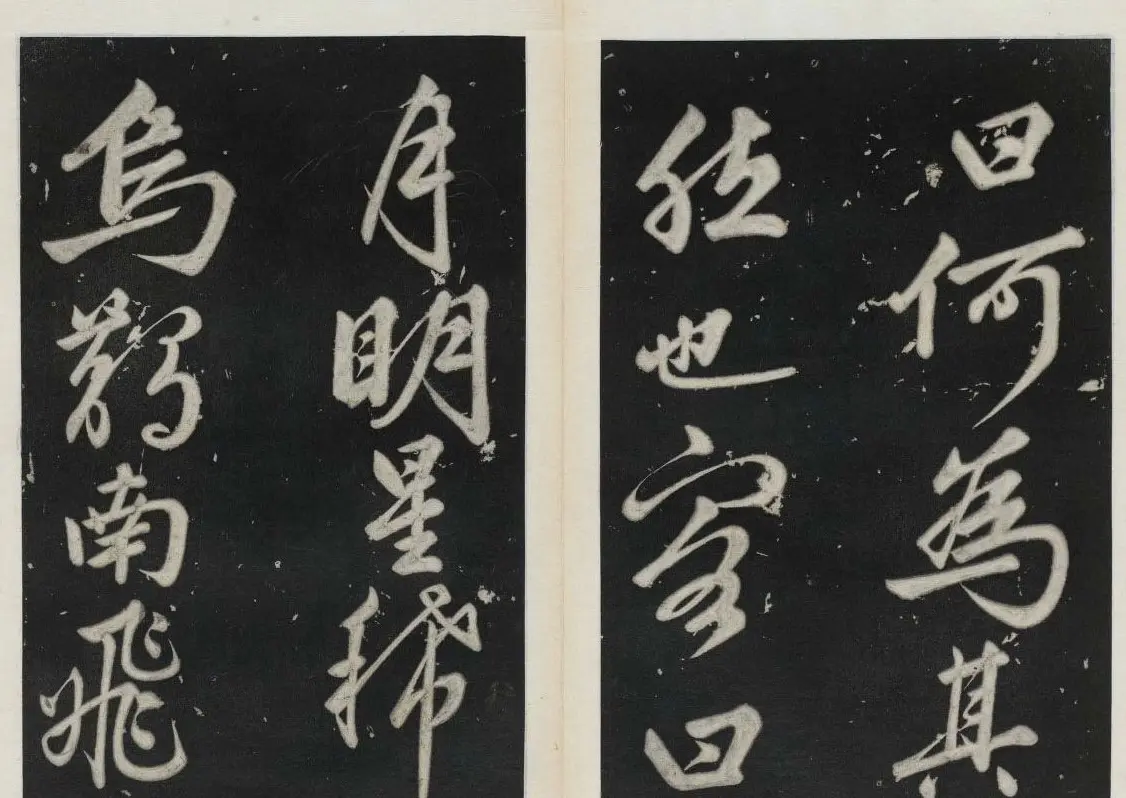 曰何為其
然也客曰
月明星稀
烏鵲南飛